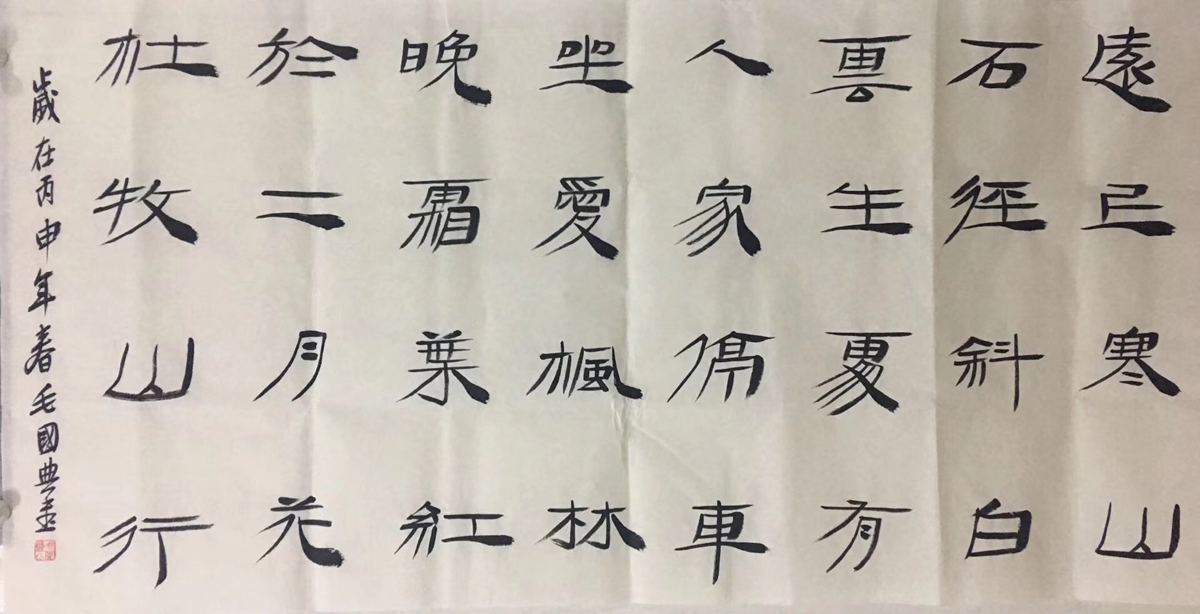 遠上寒山
石徑斜白
雲生處有
人家停車
坐愛楓林
晚霜葉紅
於二月花
杜牧山行
歲在丙申年春毛國典書